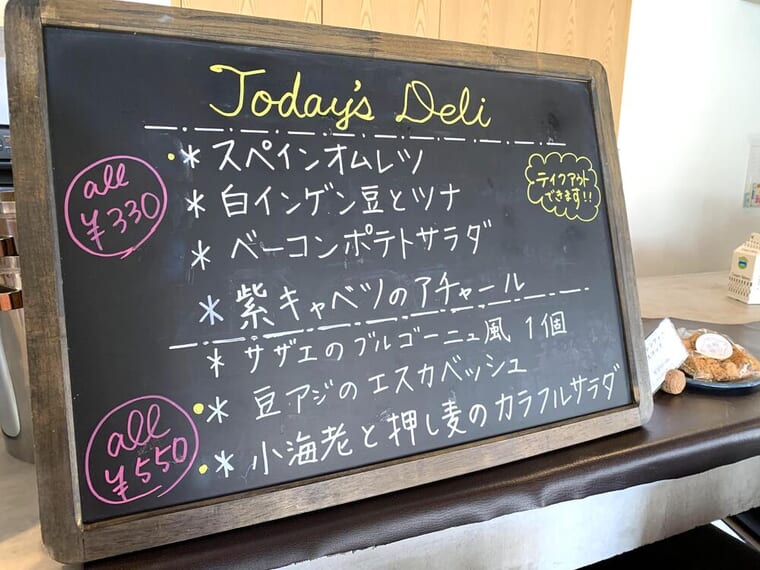 Today's Deli
all
¥330
* スペインオムレツ
* 白インゲン豆とツナ
* ベーコンポテトサラダ
* 紫キャベツのアチャール
テイクアウト
できます!!
* サザエのブルゴーニュ風 1個
* 豆アジのエスカベッシュ
* 小海老と押し麦のカラフルサラダ
all
¥550